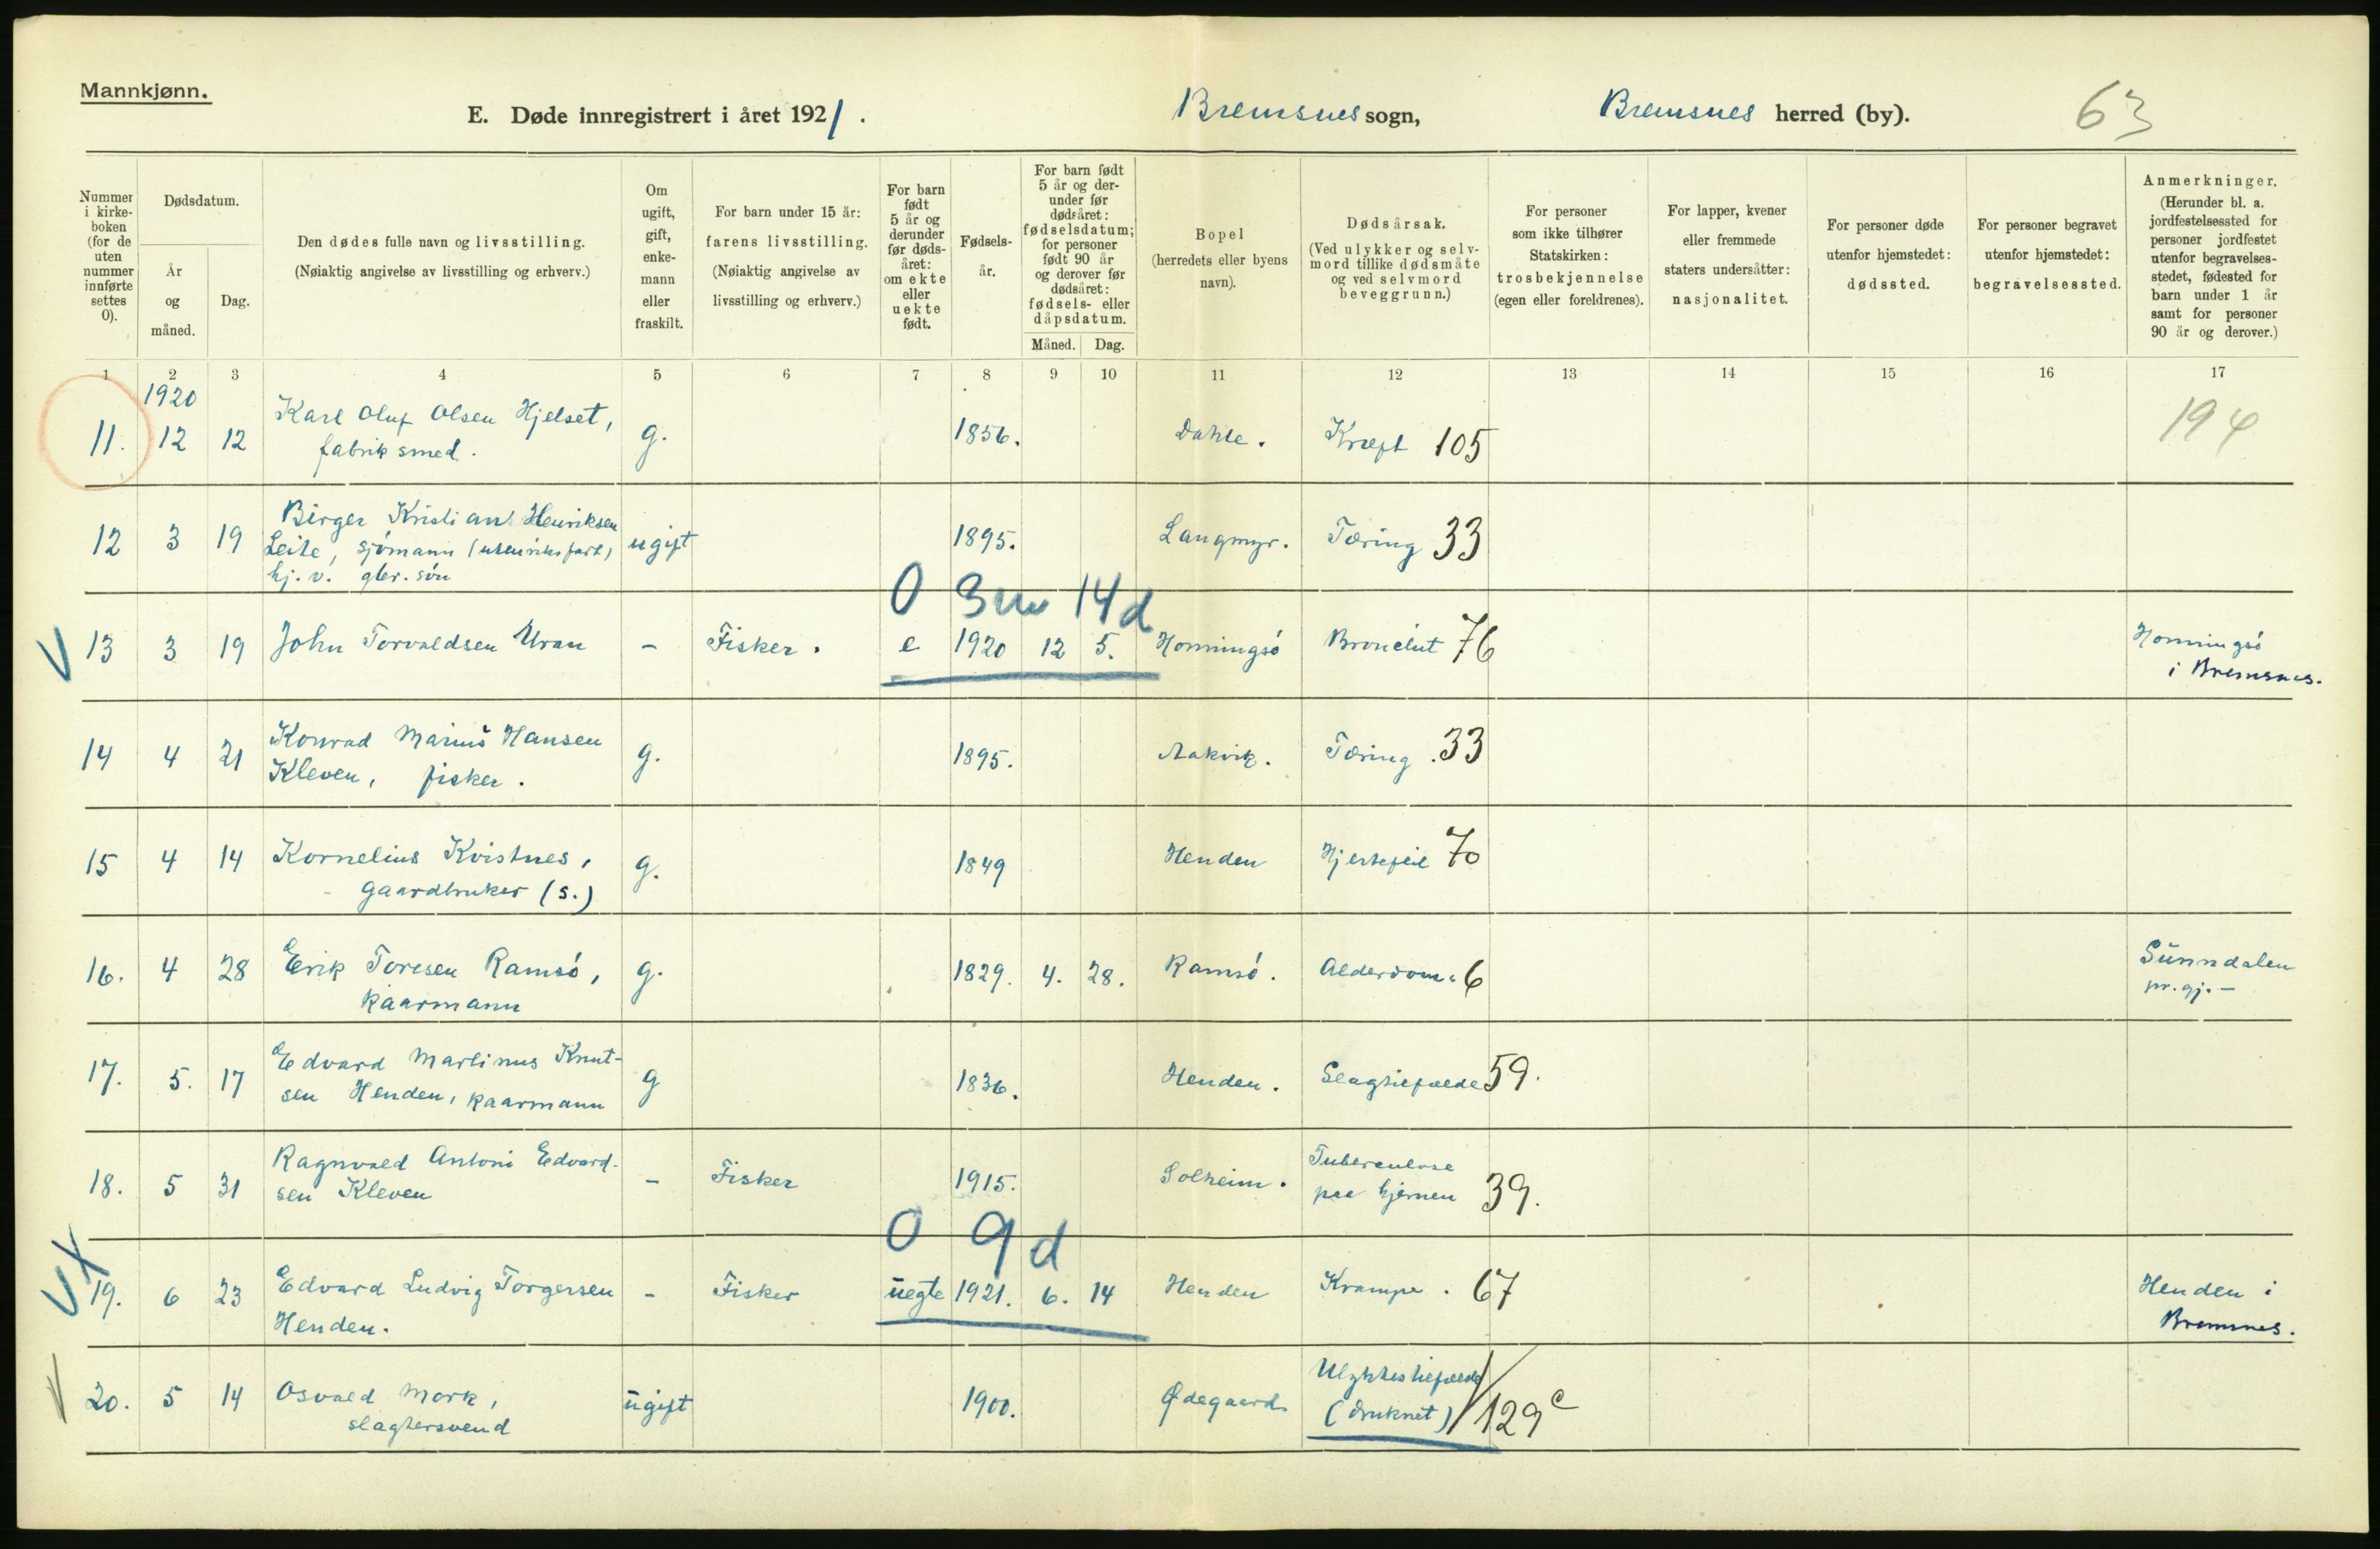 Mannkjønn.
E. Døde innregistrert i året 1921. Bremsnes sogn, Bremsnes herred (by). 63
Nummer i kirkeboken (for de uten nummer innførte settes 0).
Dødsdatum.
År og måned.
Dag.
Den dødes fulle navn og livsstilling.
(Nøiaktig angivelse av livsstilling og erhverv.)
Om ugift, gift, enkemann eller fraskilt.
For barn under 15 år: farens livsstilling.
(Nøiaktig angivelse av livsstilling og erhverv.)
For barn født 5 år og derunder før dødsåret: om ekte eller uekte født.
Fødselsår.
For barn født 5 år og derunder før dødsåret: fødselsdatum; for personer født 90 år og derover før dødsåret: fødsels- eller dåpsdatum.
Måned. Dag.
Bopel (herredets eller byens navn).
Dødsårsak.
(Ved ulykker og selvmord tillike dødsmåte og ved selvmord beveggrunn.)
For personer som ikke tilhører Statskirken: trosbekjennelse (egen eller foreldrenes).
For lapper, kvener eller fremmede staters undersåtter: nasjonalitet.
For personer døde utenfor hjemstedet: dødssted.
For personer begravet utenfor hjemstedet: begravelsessted.
Anmerkninger.
(Herunder bl. a. jordfestelsessted for personer jordfestet utenfor begravelsesstedet, fødested for barn under 1 år samt for personer 90 år og derover.)
1 2 3 4 5 6 7 8 9 10 11 12 13 14 15 16 17
1920
11. 12 12 Karl Oluf Olsen Hjelset, g. 1856. Dahle. Kræft 105 194
fabriksmed.
12 3 19 Birger Kristian Henriksen ugift 1895. Langmyr. Tæring 33
Leite, sjömann (utenriksfart)
hj. v. gbr. sön
0 3m 14d
V 13 3 19 John Torvaldsen Uran - Fisker. e 1920 12 5. Honningsö 76 Honningsö
i Bremsnes.
14 4 21 Konrad Marius Hansen g. 1895. Aakvik. Tæring. 33
Kleven, fisker.
15 4 14 Kornelius Kvistnes, g. 1849 Henden Hjertefeil 70
gaardbruker (s.)
16. 4 28 Erik Toresen Ramsö, g. 1829. 4. 28. Ramsö. Alderdom. 6 Sunndalen
kaarmann pr. gj. -
17. 5. 17 Edvard Martinus Knut- g 1836. Henden. Slagtilfælde 59.
sen Henden, kaarmann
18. 5 31 Ragnvald Antoni Edvard- - Fisker 1915. Solheim. Tuberculose
sen Kleven paa hjernen 39.
0 9d
V X 19. 6 23 Edvard Ludvig Torgersen - Fisker uegte 1921. 6. 14 Henden Krampe. 67 Henden i
Henden. Bremsnes.
V 20. 5 14 Osvald Mork, ugift 1900. Ødegaard Ulykkestilfælde
slagtersvend (druknet) 129c